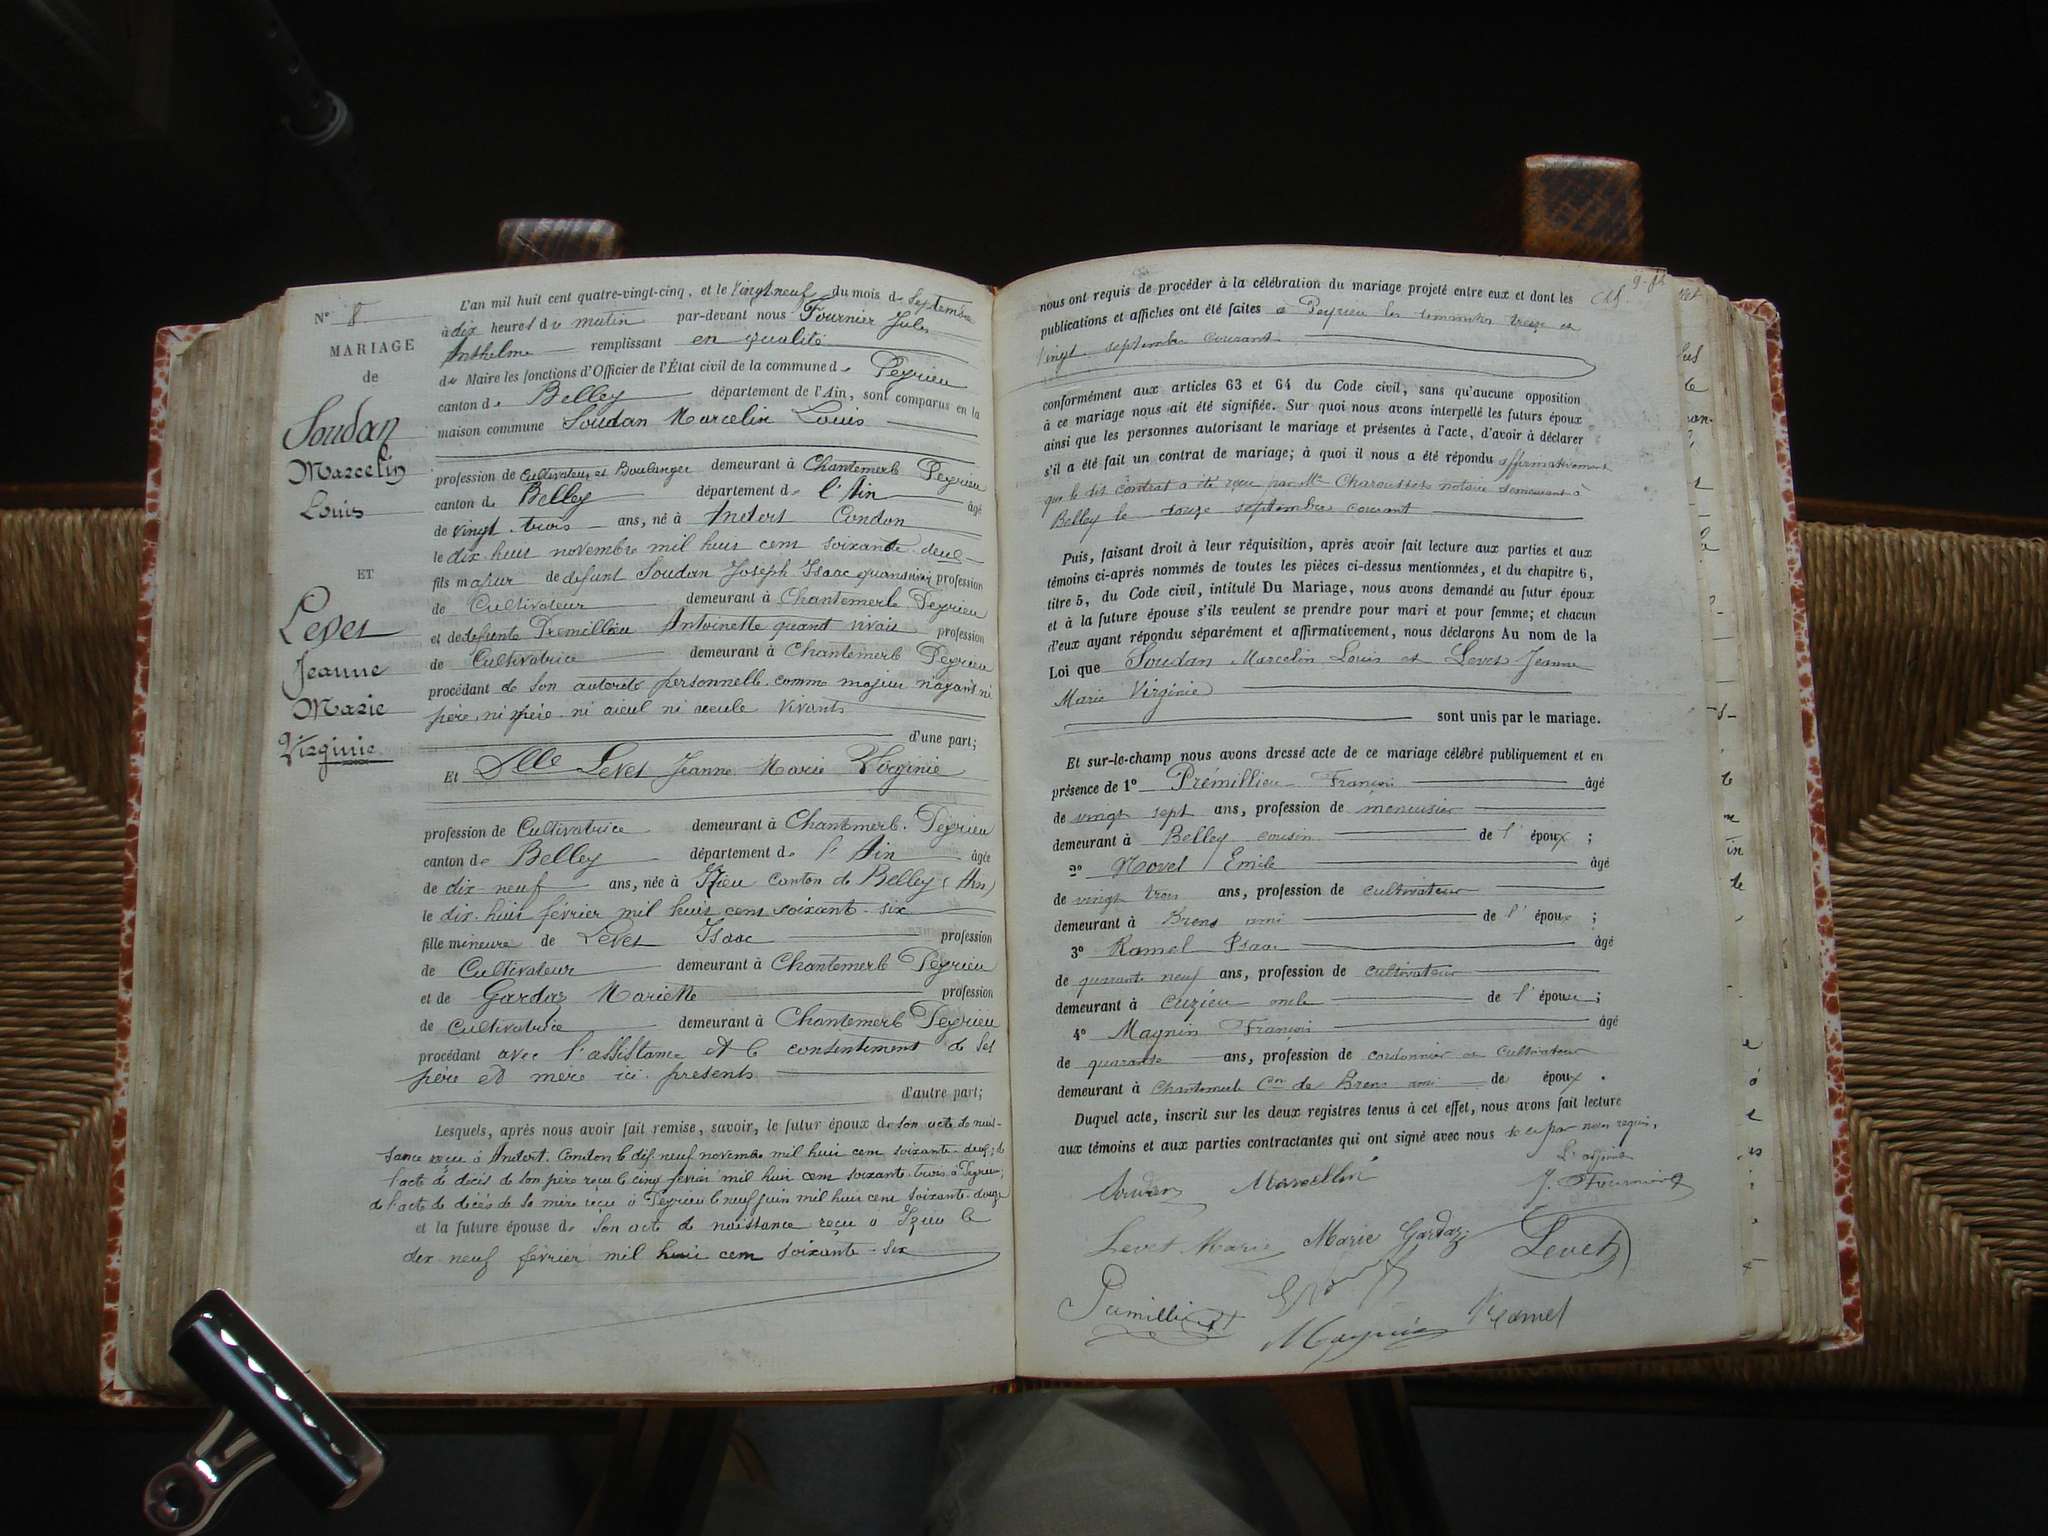 N° 8
MARIAGE
de
Soudan
Marcelin
Louis
ET
Levet
Jeanne
Marie
Virginie
L'an mil huit cent quatre-vingt-cinq, et le vingt neuf du mois de Septembre
à dix heures du matin par-devant nous Fournier Jules
Anthelme remplissant en qualité
de Maire les fonctions d'Officier de l'État civil de la commune de Peyrieu
canton de Belley département de l'Ain, sont comparus en la
maison commune Soudan Marcelin Louis
profession de Cultivateur et Boulanger demeurant à Chantemerle Peyrieu
canton de Belley département de l'Ain âgé
de vingt-trois ans, né à Andert Condon
le dix-huit novembre mil huit cent soixante-deux
fils majeur de défunt Soudan Joseph Isaac quand vivait profession
de Cultivateur demeurant à Chantemerle Peyrieu
et de défunte Premillieu Antoinette quand vivait profession
de Cultivatrice demeurant à Chantemerle Peyrieu
procédant de son autorité personnelle comme majeur n'ayant ni
père, ni mère ni aieul ni aieule vivants
d'une part;
Et Dlle Levet Jeanne Marie Virginie
profession de Cultivatrice demeurant à Chantemerle Peyrieu
canton de Belley département de l'Ain âgée
de dix-neuf ans, née à Izieu canton de Belley (Ain)
le dix-huit février mil huit cent soixante-six
fille mineure de Levet Isaac profession
de Cultivateur demeurant à Chantemerle Peyrieu
et de Gardaz Mariette profession
de Cultivatrice demeurant à Chantemerle Peyrieu
procédant avec l'assistance et le consentement de ses
père et mère ici présents
d'autre part;
Lesquels, après nous avoir fait remise, savoir, le futur époux de son acte de nais-
sance reçu à Andert-Condon le dix-neuf novembre mil huit cent soixante-deux; de
l'acte de décès de son père reçu le cinq février mil huit cent soixante-trois à Peyrieu;
de l'acte de décès de sa mère reçu à Peyrieu le neuf juin mil huit cent soixante-douze
et la future épouse de son acte de naissance reçu à Izieu le
dix-neuf février mil huit cent soixante-six
nous ont requis de procéder à la célébration du mariage projeté entre eux et dont les
publications et affiches ont été faites à Peyrieu les dimanches treize et
vingt septembre courant
conformément aux articles 63 et 64 du Code civil, sans qu'aucune opposition
à ce mariage nous ait été signifiée. Sur quoi nous avons interpellé les futurs époux
ainsi que les personnes autorisant le mariage et présentes à l'acte, d'avoir à déclarer
s'il a été fait un contrat de mariage; à quoi il nous a été répondu affirmativement
que le dit contrat a été reçu par Me Charousset notaire demeurant à
Belley le douze septembre courant
Puis, faisant droit à leur réquisition, après avoir fait lecture aux parties et aux
témoins ci-après nommés de toutes les pièces ci-dessus mentionnées, et du chapitre 6,
titre 5, du Code civil, intitulé Du Mariage, nous avons demandé au futur époux
et à la future épouse s'ils veulent se prendre pour mari et pour femme; et chacun
d'eux ayant répondu séparément et affirmativement, nous déclarons Au nom de la
Loi que Soudan Marcelin Louis et Levet Jeanne
Marie Virginie
sont unis par le mariage.
Et sur-le-champ nous avons dressé acte de ce mariage célébré publiquement et en
présence de 1° Prémillieu François âgé
de vingt sept ans, profession de menuisier
demeurant à Belley cousin de l'époux;
2° Novel Emile âgé
de vingt trois ans, profession de cultivateur
demeurant à Brens ami de l'époux;
3° Ramel Isaac âgé
de quarante neuf ans, profession de cultivateur
demeurant à Cuzieu oncle de l'épouse;
4° Magnin François âgé
de quarante ans, profession de cordonnier et cultivateur
demeurant à Chantemerle Cne de Brens ami de époux.
Duquel acte, inscrit sur les deux registres tenus à cet effet, nous avons fait lecture
aux témoins et aux parties contractantes qui ont signé avec nous de ce par nous requis.
L'adjoint
Soudan Marcellin J. Fournier
Levet Marie Marie Gardaz Levet
Prmillieu
Magnin Ramel